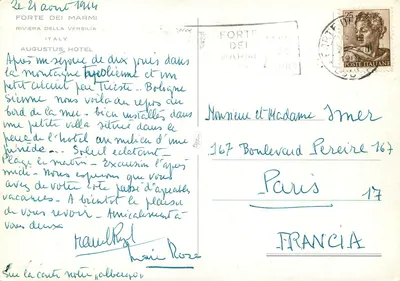 Le 21 août 1964
FORTE DEI MARMI
RIVIERA DELLA VERSILIA
ITALY
AUGUSTUS HOTEL
Après un séjour de dix jours dans
la montagne tyrolienne et un
petit circuit par Trieste - Bologne
Sienne nous voilà au repos au
bord de la mer - bien installés dans
une petite villa située dans le
parc de l'hotel au milieu d'une
pinède. - Soleil éclatant -
Plage le matin - Excursion l'après
midi - Nous espérons que vous
avez de votre côté passé d'agréables
vacances. A bientôt le plaisir
de vous revoir - Amicalement à
vous deux
Rose
Sur la carte notre "albergo"
FORTE
DEI
MARMI
POSTE ITALIANE
Monsieur et Madame Imer
167 Boulevard Pereire 167
Paris 17
FRANCIA